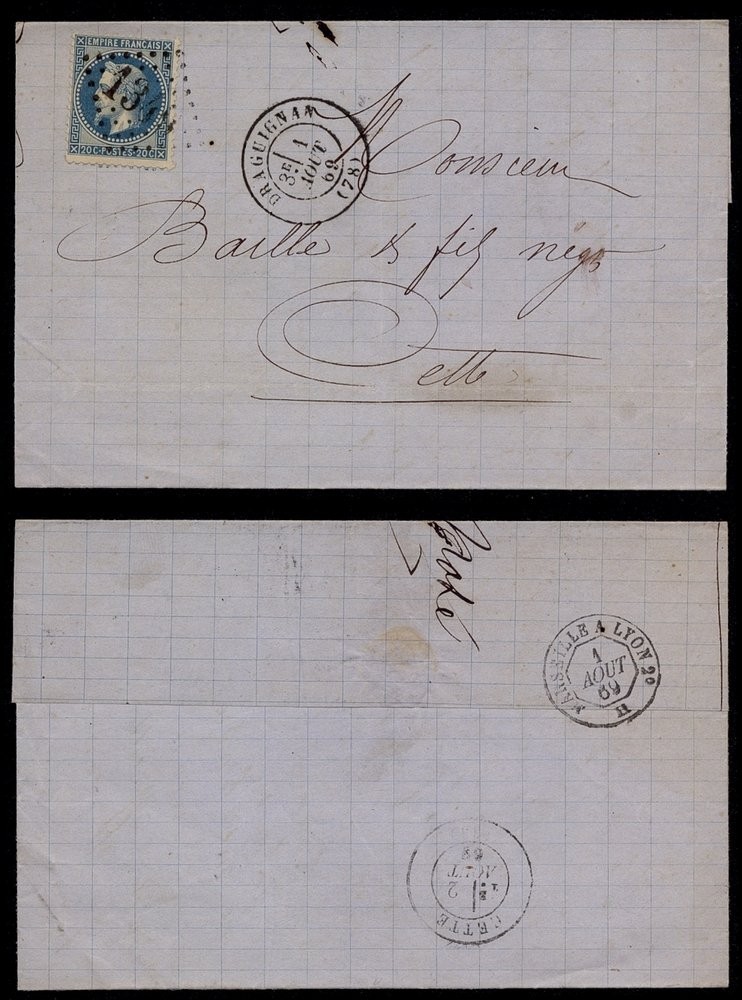 EMPIRE FRANÇAIS
134
20C·POSTES·20C
DRAGUIGNAN
3E
1
AOUT
69
(78)
Monsieur
Baille & fils négts
Cette
MARSEILLE A LYON 2º
1
AOUT
69
H
CETTE
2
AOUT
69